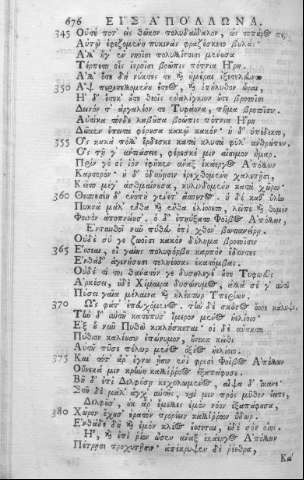 676 ΕΙΣ ΑΠΟΛΛΩΝΑ.
345 Οὔτέ ποτ' ἐς θῶκον πολυδαίδαλον, ὡς τοπάρος περ
Αὐτῷ ἐφεζομένη πυκινὰς φραζέσκετο βουλάς·
Ἀλλ' ἥγ' ἐν νηοῖσι πολυλλίστοισι μένουσα
Τέρπετο οἷς ἱεροῖσι βοῶπις πότνια Ἥρη.
Ἀλλ' ὅτε δὴ νύκτες τε καὶ ἡμέραι ἐξετελεῦντο
350 Ἂψ περιτελλομένου ἔτεος, καὶ ἐπήλυθον ὧραι,
Ἡ δ' ἔτεκ' οὔτε θεοῖς ἐναλίγκιον οὔτε βροτοῖσι
Δεινόν τ' ἀργαλέον τε Τυφάονα, πῆμα βροτοῖσιν.
Αὐτίκα τόνδε λαβοῦσα βοῶπις πότνια Ἥρη
Δῶκεν ἔπειτα φέρουσα κακῷ κακόν· ἡ δ' ὑπέδεκτο,
355 Ὃς κακὰ πόλλ' ἔρδεσκε κατὰ κλυτὰ φῦλ' ἀνθρώπων.
Ὃς τῇ γ' ἀντιάσειε, φέρεσκέ μιν αἴσιμον ἦμαρ,
Πρίν γέ οἱ ἰὸν ἐφῆκεν ἄναξ ἑκάεργος Ἀπόλλων
Καρτερόν· ἡ δ' ὀδύνῃσιν ἐρεχθομένη χαλεπῇσι,
Κεῖτο μέγ' ἀσθμαίνουσα, κυλινδομένη κατὰ χῶρον·
360 Θεσπεσίη δ' ἐνοπὴ γένετ' ἄσπετος· ἡ δὲ καθ' ὕλην
Πυκνὰ μάλ' ἔνθα καὶ ἔνθα ἑλίσσετο, λεῖπε δὲ θυμὸν
Φοινὸν ἀποπνείουσ'· ὁ δ' ἐπηύξατο Φοῖβος Ἀπόλλων,
Ἐνταυθοῖ νῦν πύθευ ἐπὶ χθονὶ βωτιανείρῃ.
Οὐδὲ σύ γε ζωοῖσι κακὸν δήλημα βροτοῖσιν
365 Ἔσσεαι, οἳ γαίης πολυφόρβου καρπὸν ἔδοντες
Ἐνθάδ' ἀγινήσουσι τεληέσσας ἑκατόμβας·
Οὐδέ τί τοι θάνατόν γε δυσηλεγέ' οὔτε Τυφωεὺς
Ἀρκέσει, οὐδὲ Χίμαιρα δυσώνυμος, ἀλλά σέ γ' αὐτοῦ
Πύσει γαῖα μέλαινα καὶ ἠλέκτωρ Ὑπερίων.
370 Ὣς φάτ' ἐπευχόμενος· τὴν δὲ σκότος ὄσσε κάλυψε
Τὴν δ' αὐτοῦ κατέπυσ' ἱερὸν μένος ἠελίοιο·
Ἐξ οὗ νῦν Πυθὼ κικλήσκεται· οἱ δὲ ἄνακτα
Πύθιον καλέουσιν ἐπώνυμον, οὕνεκα κεῖθι
Αὐτοῦ πῦσε πέλωρ μένος ὀξέος ἠελίοιο.
375 Καὶ τότ' ἄρ ἔγνω ᾗσιν ἐνὶ φρεσὶ Φοῖβος Ἀπόλλων
Οὕνεκά μιν κρήνη καλλίρροος ἐξαπάφησε.
Βῆ δ' ἐπὶ Δελφούσῃ κεχολωμένος, αἶψα δ' ἵκανε·
Στῆ δὲ μάλ' ἄγχ' αὐτῆς, καί μιν πρὸς μῦθον ἔειπε,
Δελφοῦσ', οὐκ ἄρ' ἔμελλες ἐμὸν νόον ἐξαπαφοῦσα,
380 Χῶρον ἔχουσ' ἐρατὸν προρέειν καλλίρροον ὕδωρ.
Ἐνθάδε δὴ καὶ ἐμὸν κλέος ἔσσεται, οὐδὲ σὸν οἴης.
Ἦ, καὶ ἐπὶ ῥίον ὦσεν ἄναξ ἑκάεργος Ἀπόλλων
Πέτρῃσι προχυτῇσιν· ἀπέκρυψεν δὲ ῥέεθρα,
Καὶ